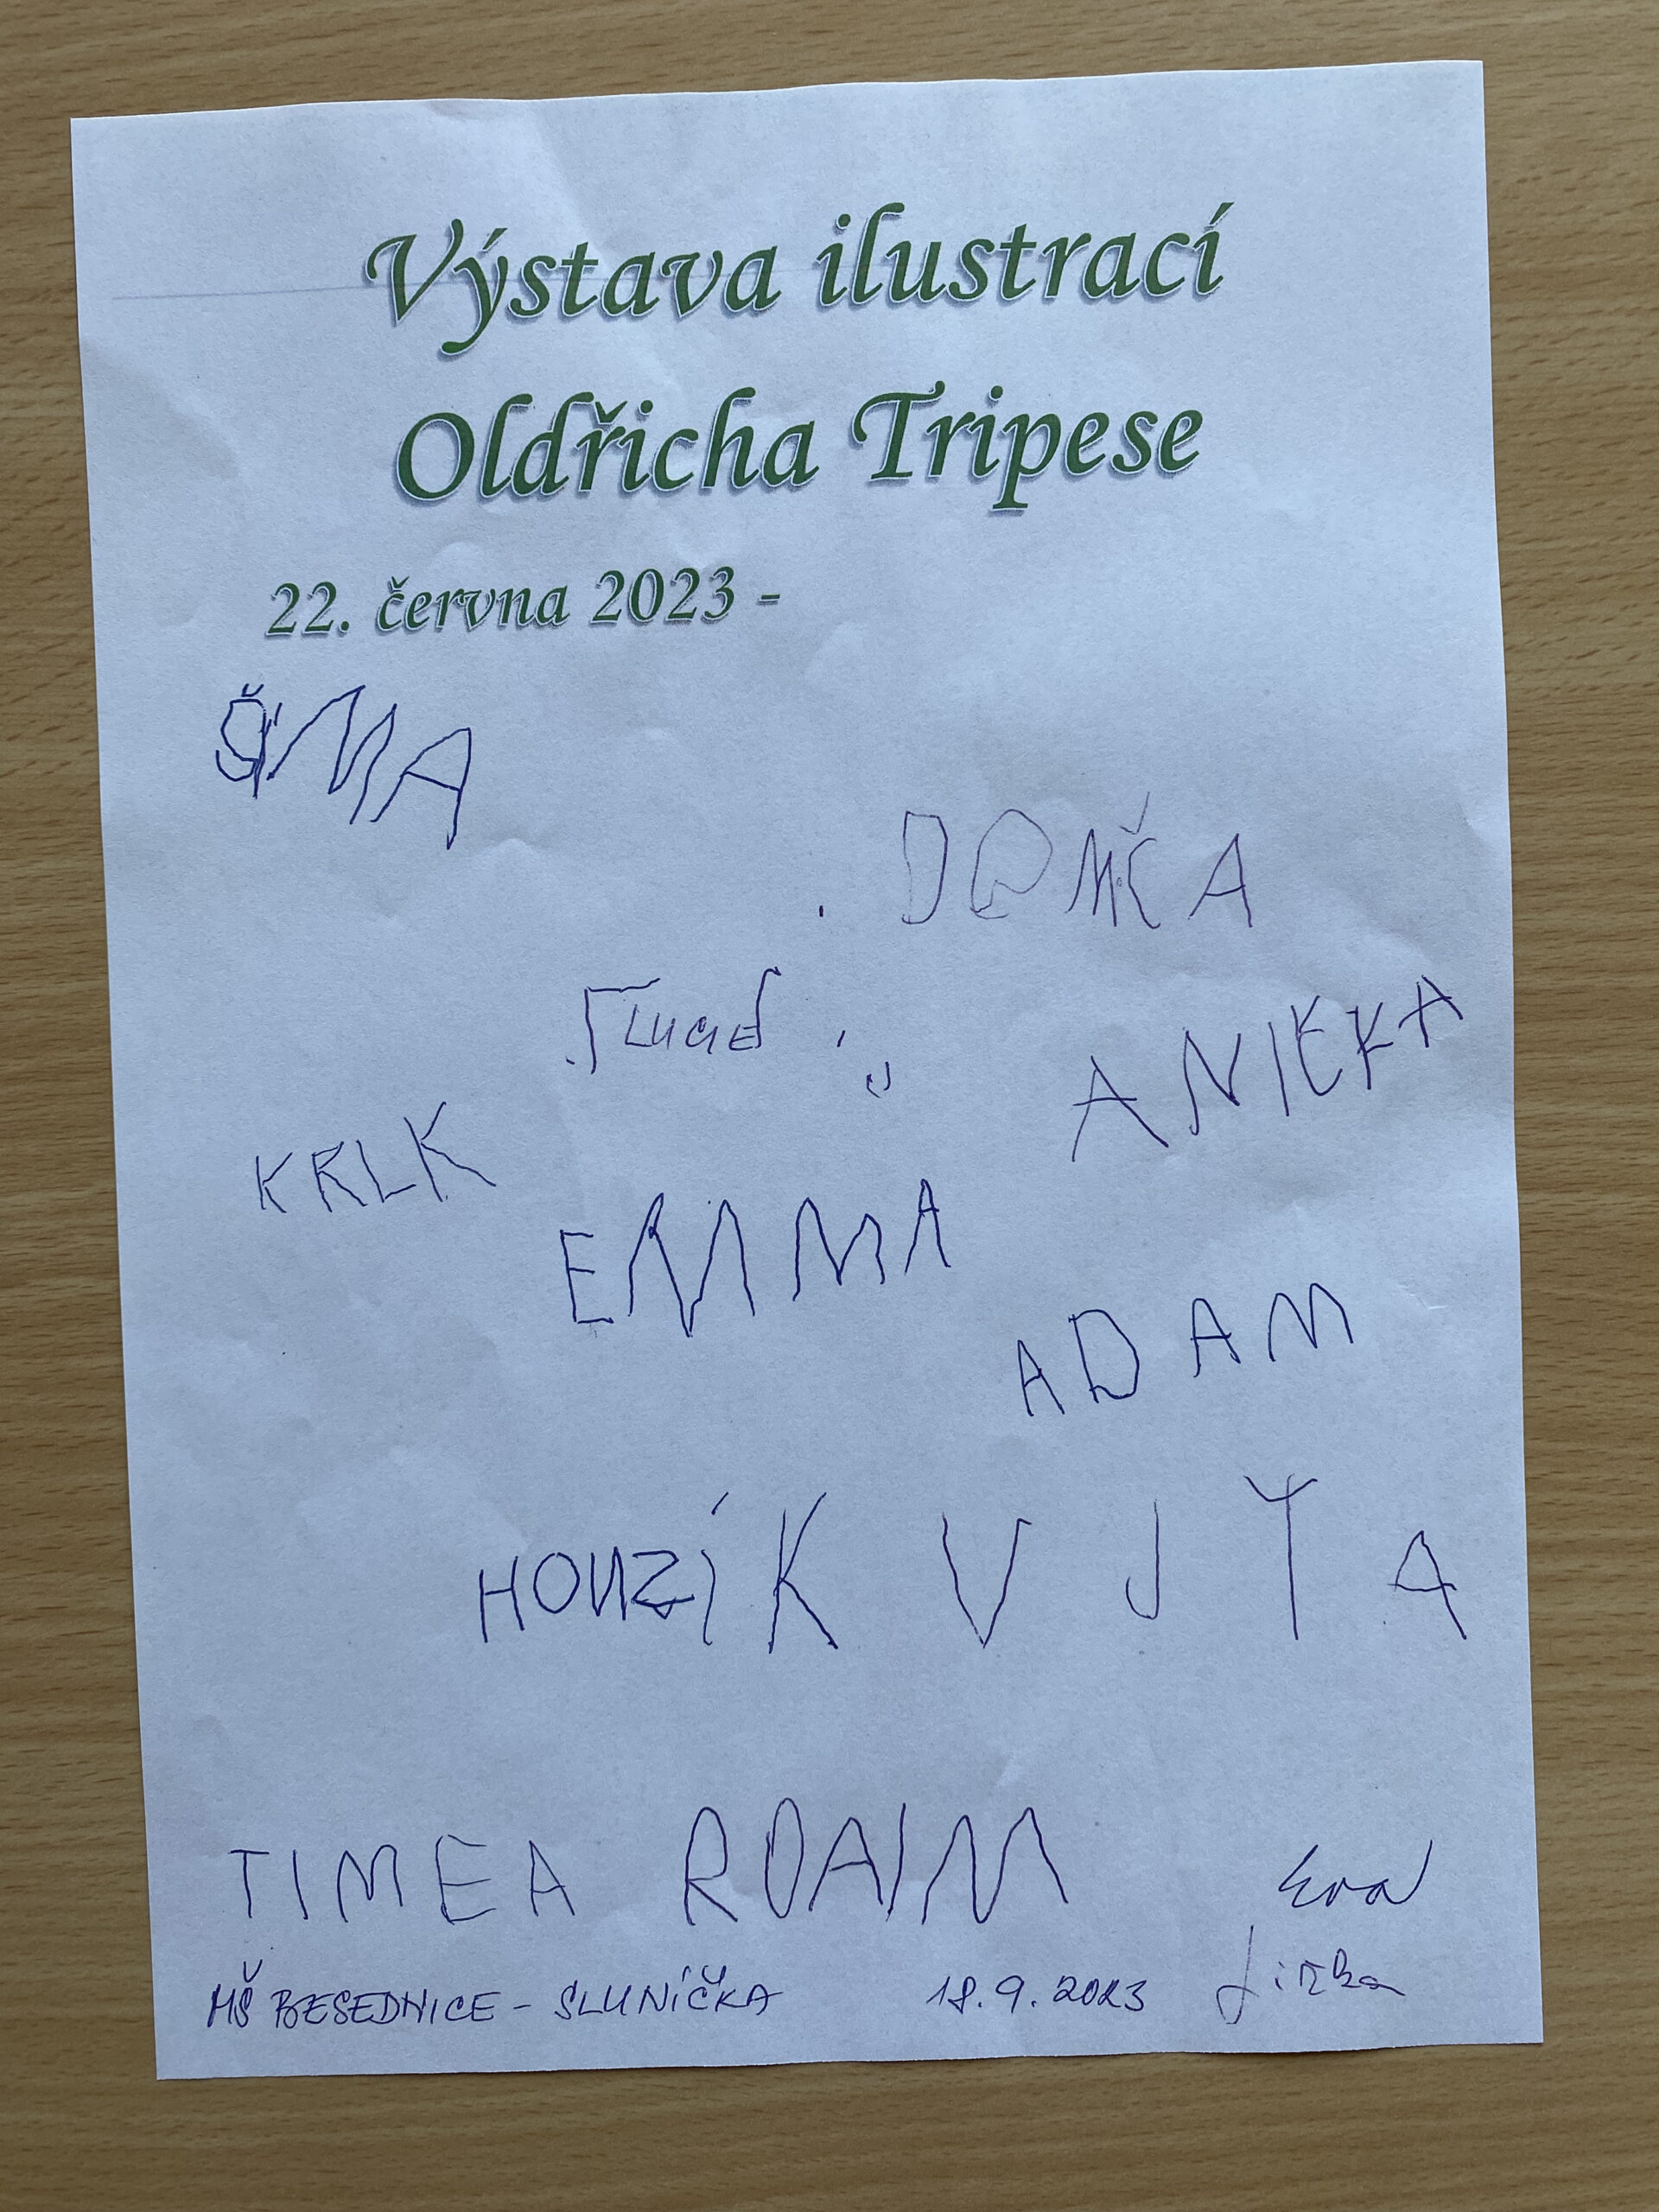 Výstava ilustrací
Oldřicha Tripese
22. června 2023 -
ŠÍMA
DOMČA
ANIČKA
KRLK
EMMA
ADAM
HONZÍK VJTA
TIMEA ROAIM Eva
MŠ BESEDNICE - SLUNÍČKA 18.9.2023 Jirka